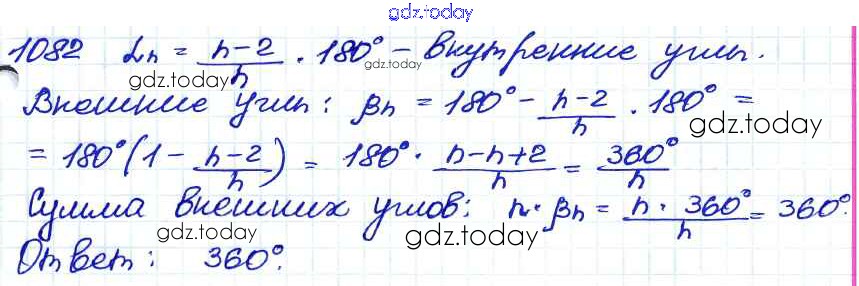 gdz.today
1082 αn = n-2/n · 180° - внутренние углы.
gdz.today gdz.today
Внешние углы: βn = 180° - n-2/n · 180° =
gdz.today
= 180°(1 - n-2/n) = 180° · n-n+2/n = 360°/n
Сумма внешних углов: n · βn = n · 360°/n = 360°.
gdz.today gdz.today
Ответ: 360°.